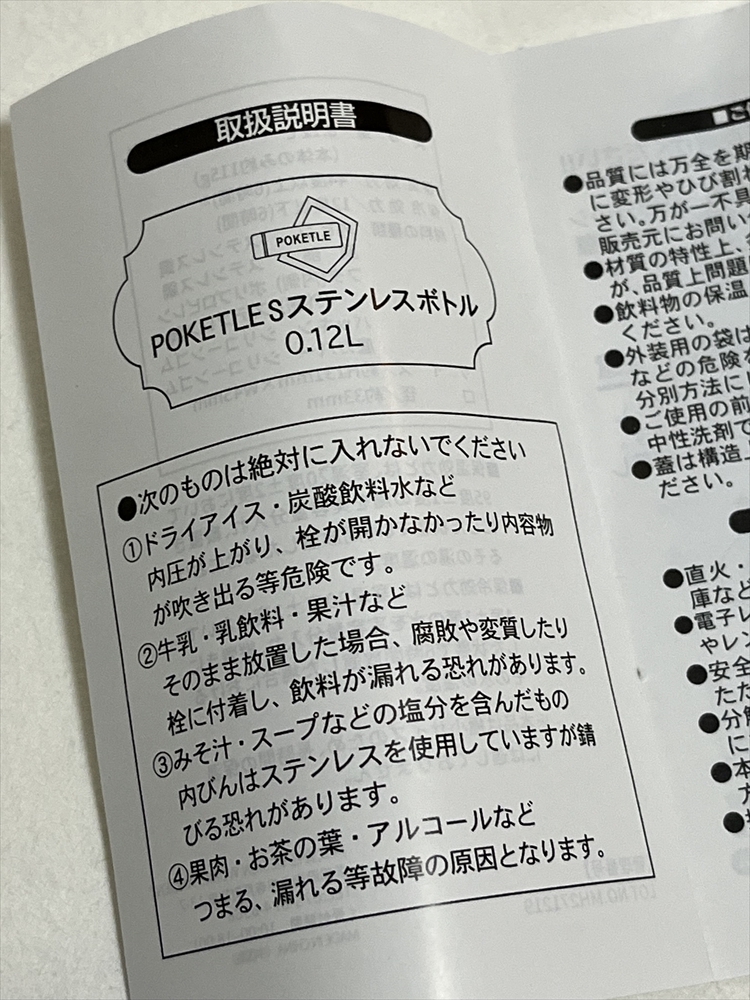 取扱説明書
POKETLE
POKETLE S ステンレスボトル
0.12L
●次のものは絶対に入れないでください
①ドライアイス・炭酸飲料水など
内圧が上がり、栓が開かなかったり内容物
が吹き出る等危険です。
②牛乳・乳飲料・果汁など
そのまま放置した場合、腐敗や変質したり
栓に付着し、飲料が漏れる恐れがあります。
③みそ汁・スープなどの塩分を含んだもの
内びんはステンレスを使用していますが錆
びる恐れがあります。
④果肉・お茶の葉・アルコールなど
つまる、漏れる等故障の原因となります。
●品質には万全を期
に変形やひび割れ
さい。万が一不具
販売元にお問い
●材質の特性上、
が、品質上問題
●飲料物の保温
ください。
●外装用の袋は
などの危険
分別方法に
●ご使用の前
中性洗剤で
●蓋は構造上
ださい。
●直火・
庫など
●電子レ
やレン
●安全
ただ
●分解
に
●本
方